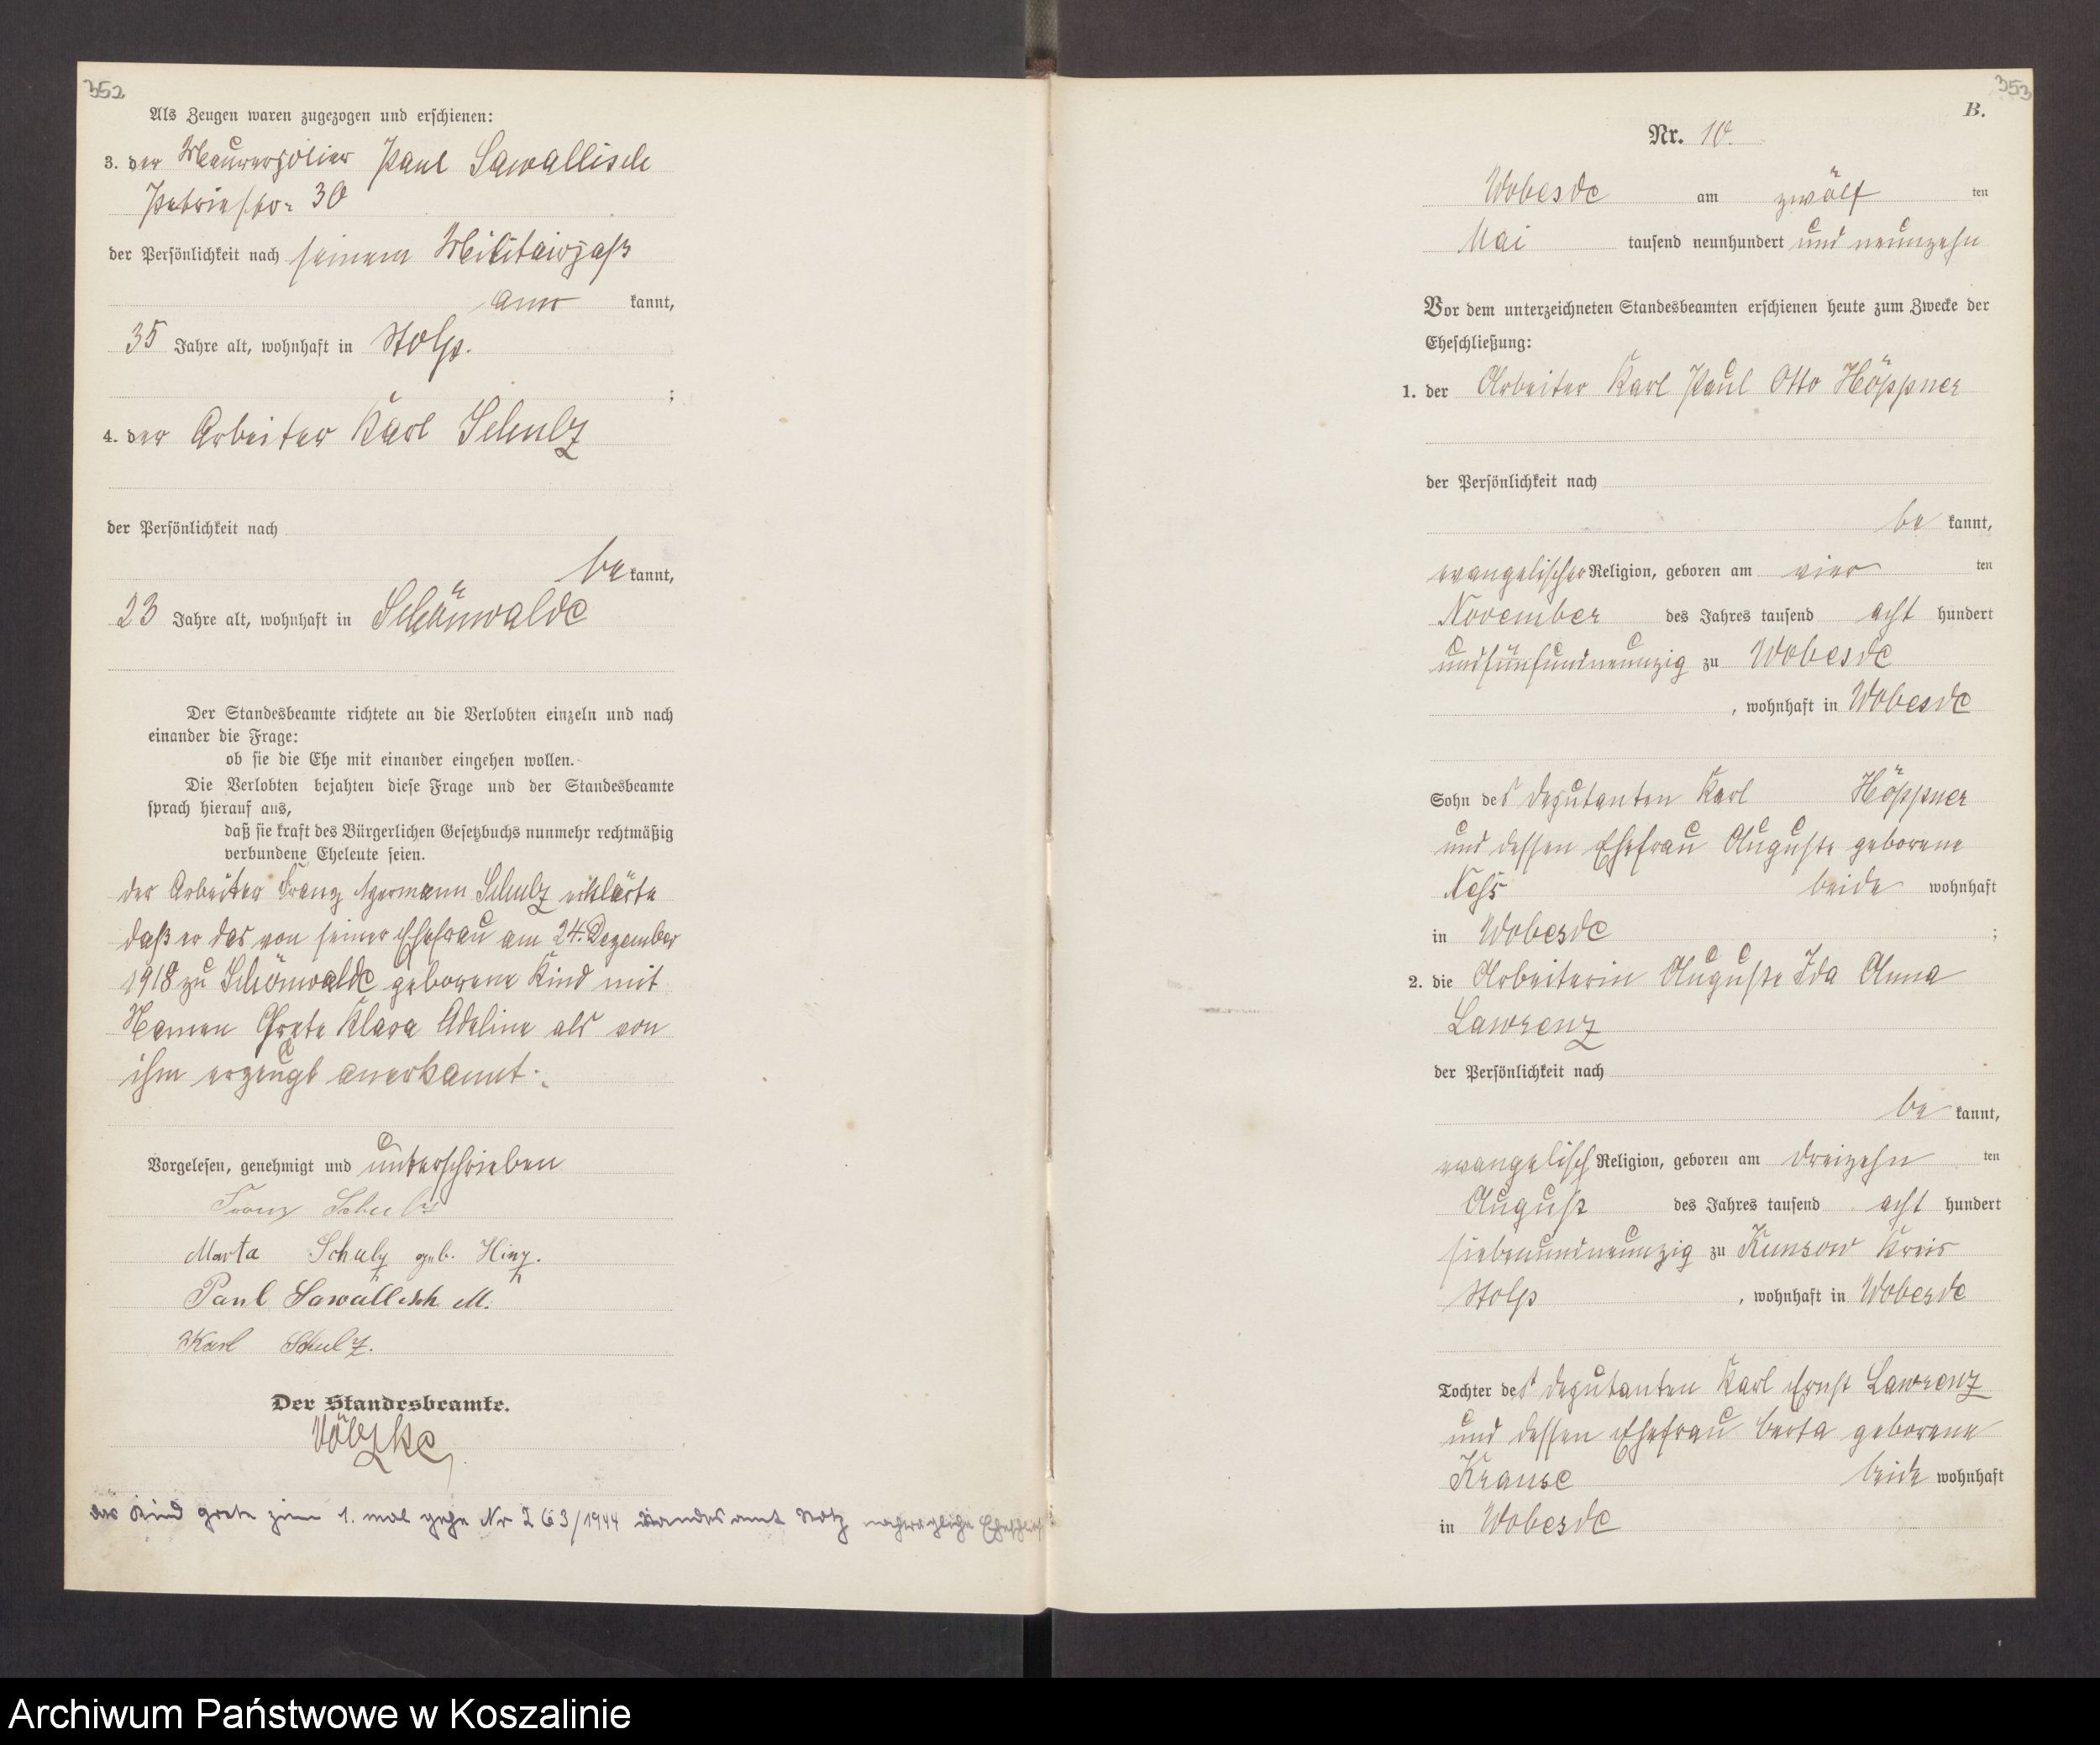 352
Als Zeugen waren zugezogen und erschienen:
3. der Maurerpolier Paul Sawallisch
Petristr. 30
der Persönlichkeit nach seinem Militairpaß
aner kannt,
35 Jahre alt, wohnhaft in Stolp.
;
4. der Arbeiter Karl Schulz
der Persönlichkeit nach
be kannt,
23 Jahre alt, wohnhaft in Schönwalde
Der Standesbeamte richtete an die Verlobten einzeln und nach
einander die Frage:
ob sie die Ehe mit einander eingehen wollen.
Die Verlobten bejahten diese Frage und der Standesbeamte
sprach hierauf aus,
daß sie kraft des Bürgerlichen Gesetzbuchs nunmehr rechtmäßig
verbundene Eheleute seien.
der Arbeiter Franz Hermann Schulz erklärte
daß er das von seiner Ehefrau am 24. Dezember
1918 zu Schönwalde geborene Kind mit
Namen Grete Klara Adeline als von
ihm erzeugt anerkannt.
Vorgelesen, genehmigt und unterschrieben
Franz Schulz
Marta Schulz geb. Hinz.
Paul Sawallisch M.
Karl Schulz.
Der Standesbeamte.
das Kind Grete zum 1. mal gehe Nr 263/1944 Standesamt
353
B.
Nr. 10.
Wobesde am zwölf ten
Mai tausend neunhundert und neunzehn
Vor dem unterzeichneten Standesbeamten erschienen heute zum Zwecke der
Eheschließung:
1. der Arbeiter Karl Paul Otto Höppner
der Persönlichkeit nach
be kannt,
evangelischer Religion, geboren am vier ten
November des Jahres tausend acht hundert
undfünfundneunzig zu Wobesde
, wohnhaft in Wobesde
Sohn des Deputanten Karl Höppner
und dessen Ehefrau Auguste geborene
beide wohnhaft
in Wobesde ;
2. die Arbeiterin Auguste Ida Anna
Lawrenz
der Persönlichkeit nach
be kannt,
evangelisch Religion, geboren am dreizehn ten
August des Jahres tausend acht hundert
siebenundneunzig zu Kunsow Kreis
Stolp , wohnhaft in Wobesde
Tochter des Deputanten Karl Ernst Lawrenz
und dessen Ehefrau Berta geborene
Krause beide wohnhaft
in Wobesde
Archiwum Państwowe w Koszalinie